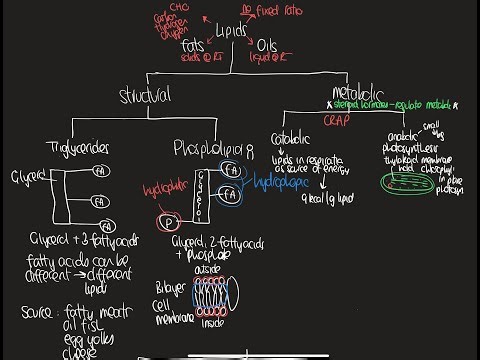 CHO
Carbon
Hydrogen
Oxygen
Lipids
no fixed ratio
fats
solids @ RT
Oils
liquid @ RT
Structural
Metabolic
* steroid hormones - regulate metabolic *
CRAP
Triglycerides
Glycerol
FA
FA
FA
Glycerol + 3 fatty acids
fatty acids can be
different → different
lipids
Source: fatty meats
oil fish
egg yolks
cheese
Phospholipid
hydrophilic
P
Glycerol
FA
FA
hydrophobic
Glycerol, 2 fatty acids
+ phosphate
outside
Bilayer
cell
membrane
inside
Catabolic
lipids in respiration
as source of energy
9 kcal /g lipid
anabolic
small
photosynthesis
thylakoid membrane
hold chlorophyll
in place